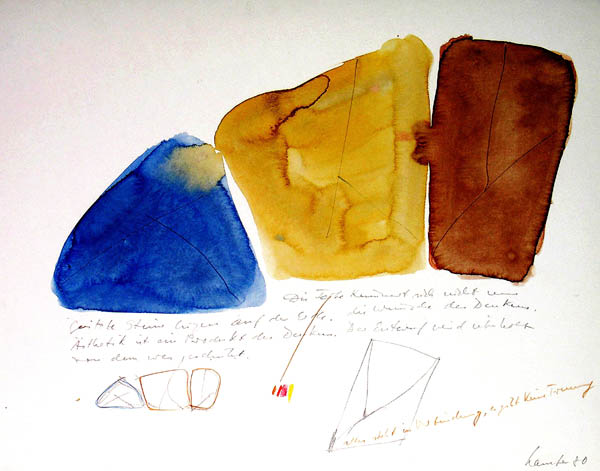 Die Erde kümmert sich nicht um
Steine liegen auf der Erde. die Wünsche des Denkens.
Ästhetik ist ein Produkt des Denkens. Der Entwurf wird überholt
von dem was geschieht.
alles steht in Verbindung, es gibt keine Trennung
80